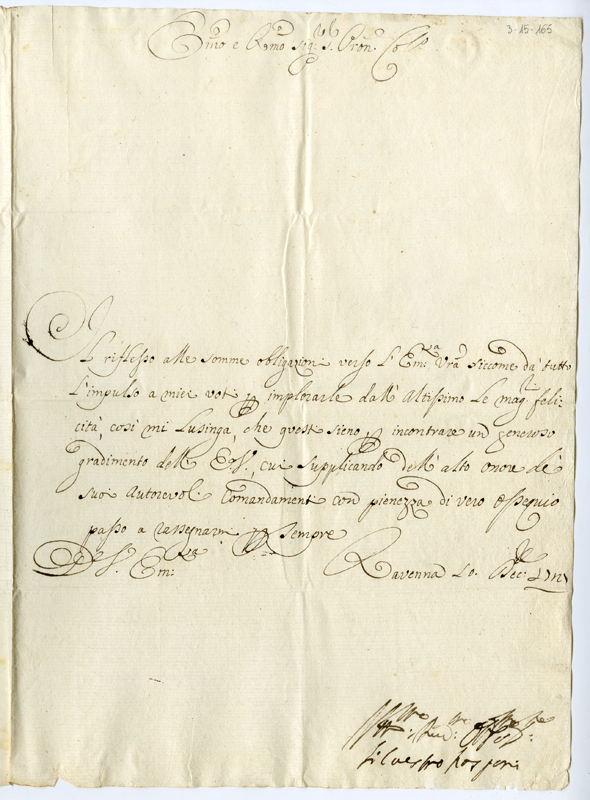 3-15-165
Emo e Rmo Sig.r S.r Pron. Coll.mo
Il riflesso alle somme obligazioni verso l'Em:za Vra siccome dà tutto
l'impulso a miei voti p implorarle dall'Altissimo le mag.ri feli-
cità, così mi lusinga, che questi sieno p incontrare un generoso
gradimento dell' E.V. cui supplicando dell' alto onore de
suoi autorevoli comandamenti con pienezza di vero ossequio
passo a rassegnarmi p sempre
D. V. Em:za
Ravenna 20. Dec.
Silvestro Rasponi